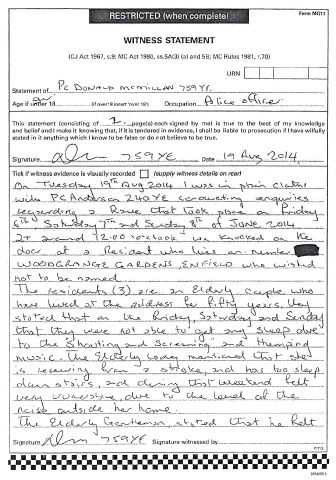 RESTRICTED (when complete)
Form MG11
WITNESS STATEMENT
(CJ Act 1967, s.9; MC Act 1980, ss.5A(3) (a) and 5B; MC Rules 1981, r.70)
URN
Statement of PC DONALD MCMILLAN 759YE
Age if under 18 (if over 18 insert 'over 18') Occupation Police officer
This statement (consisting of page(s) each signed by me) is true to the best of my knowledge
and belief and I make it knowing that, if it is tendered in evidence, I shall be liable to prosecution if I have wilfully
stated in it anything which I know to be false or do not believe to be true.
Signature 759YE Date 19 Aug 2014
Tick if witness evidence is visually recorded (supply witness details on rear)
On Tuesday 19th Aug 2014 I was in plain clothes
with PC Anderson 240YE conducting enquiries
regarding a Rave that took place on Friday
6th Saturday 7th and Sunday 8th of JUNE 2014
at around 12:00 o'clock we knocked on the
door at a Resident who lives on number
WOODGRANGE GARDENS, ENFIELD who wished
not to be named.
The residents (3) are an Elderly couple who
have lived at the address for fifty years, they
stated that on the Friday, Saturday and Sunday
that they were not able to get any sleep due
to the Shouting and Screaming and thumping
music. The Elderly Lady mentioned that she
is recovering from a stroke, and has too sleep
down stairs, and during that weekend felt
very vunerable, due to the level of the
noise outside her home.
The Elderly Gentleman, stated that he felt
Signature 759YE Signature witnessed by
P.T.O.